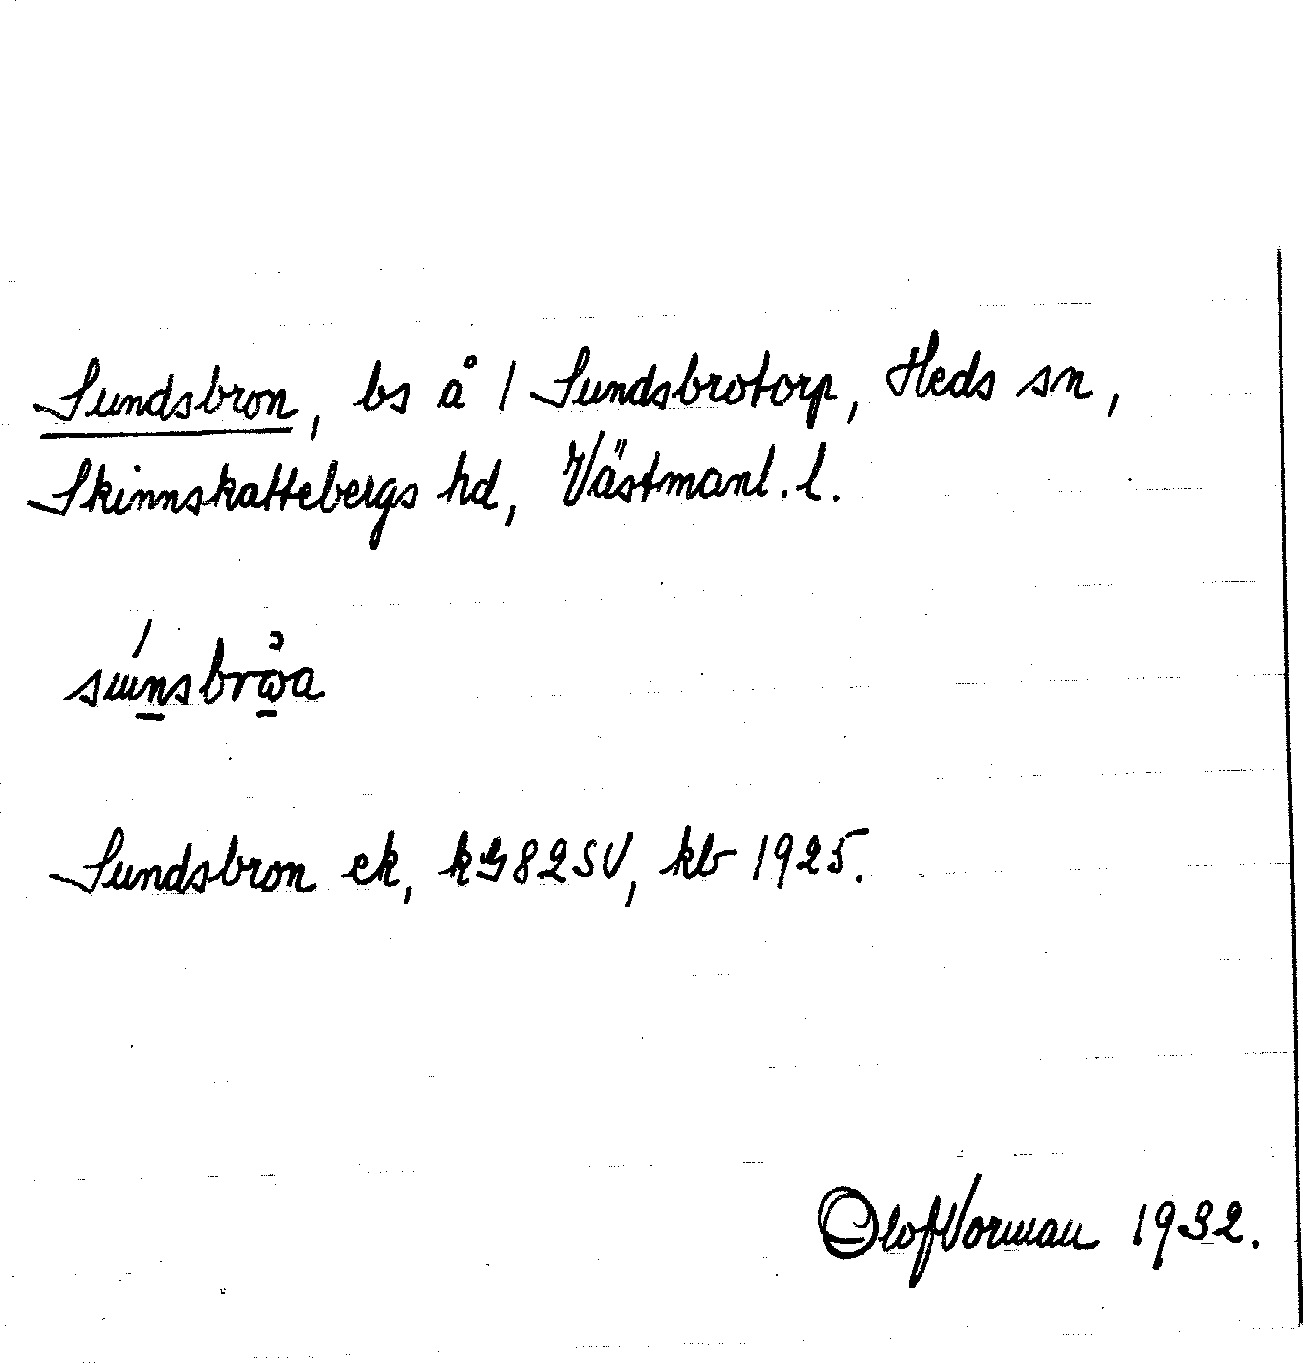 Sundsbron, bs å / Sundsbrotorp, Heds sn,
Skinnskattebergs hd, Västmanl. l.
Sundsbron ek, kG 82 SV, kb 1925.
Olof Vorman 1932.